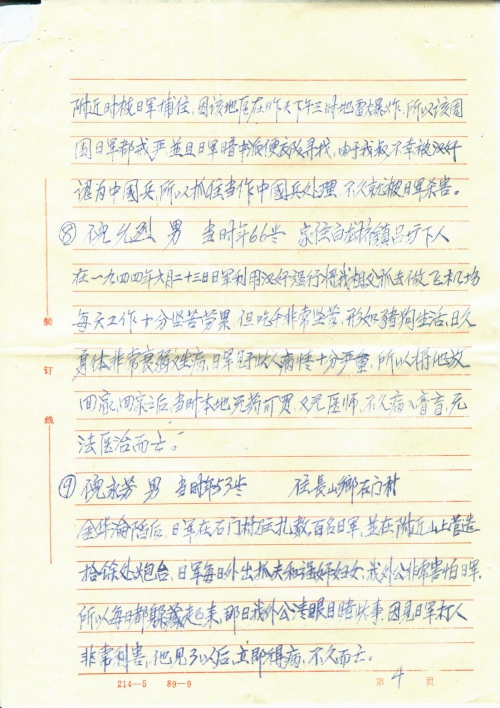 附近时被日军捕住，因该地区在昨天下午三时地雷爆炸，所以该周
围日军都戒严并且日军暗书派便衣队寻找，由于我叔不幸被汉奸
谓为中國兵，所以抓住当作中國兵处理，不久就被日军杀害。
⑧ 倪允烈 男 当时年66岁 家住白龙桥镇吕圩下人
在一九四四年六月二十三日日军利用汉奸强行将我祖父抓去做飞机场
每天工作十分坚苦劳累，但吃午非常坚苦，形如猪狗生活，日久
身体非常衰弱又生病，日军 以人病情十分严重，所以将他放
回家，回家之后，当时本地无药可買，又无医师，不久病入膏盲，无
法医治而亡。
⑨ 倪永芳 男 当时年53岁 住長山鄉石门村
金华淪陷后，日军在石门村住扎数百名日军，並在附近山上营造
拾馀处炮台，日军每日外出抓夫和 奸妇女，我外公非常害怕日军，
所以每日都躲藏起来，那日我外公 眼目睹此事，因见日军打人
非常利害，他见了以后，立即得病，不久而亡。
214—5 89—9
第 4 页
装
订
線